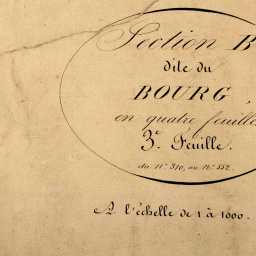 Section B
dite du
BOURG,
en quatre feuilles
3e Feuille.
du No. 310, au No. 552.
A l'échelle de 1 à 1000.